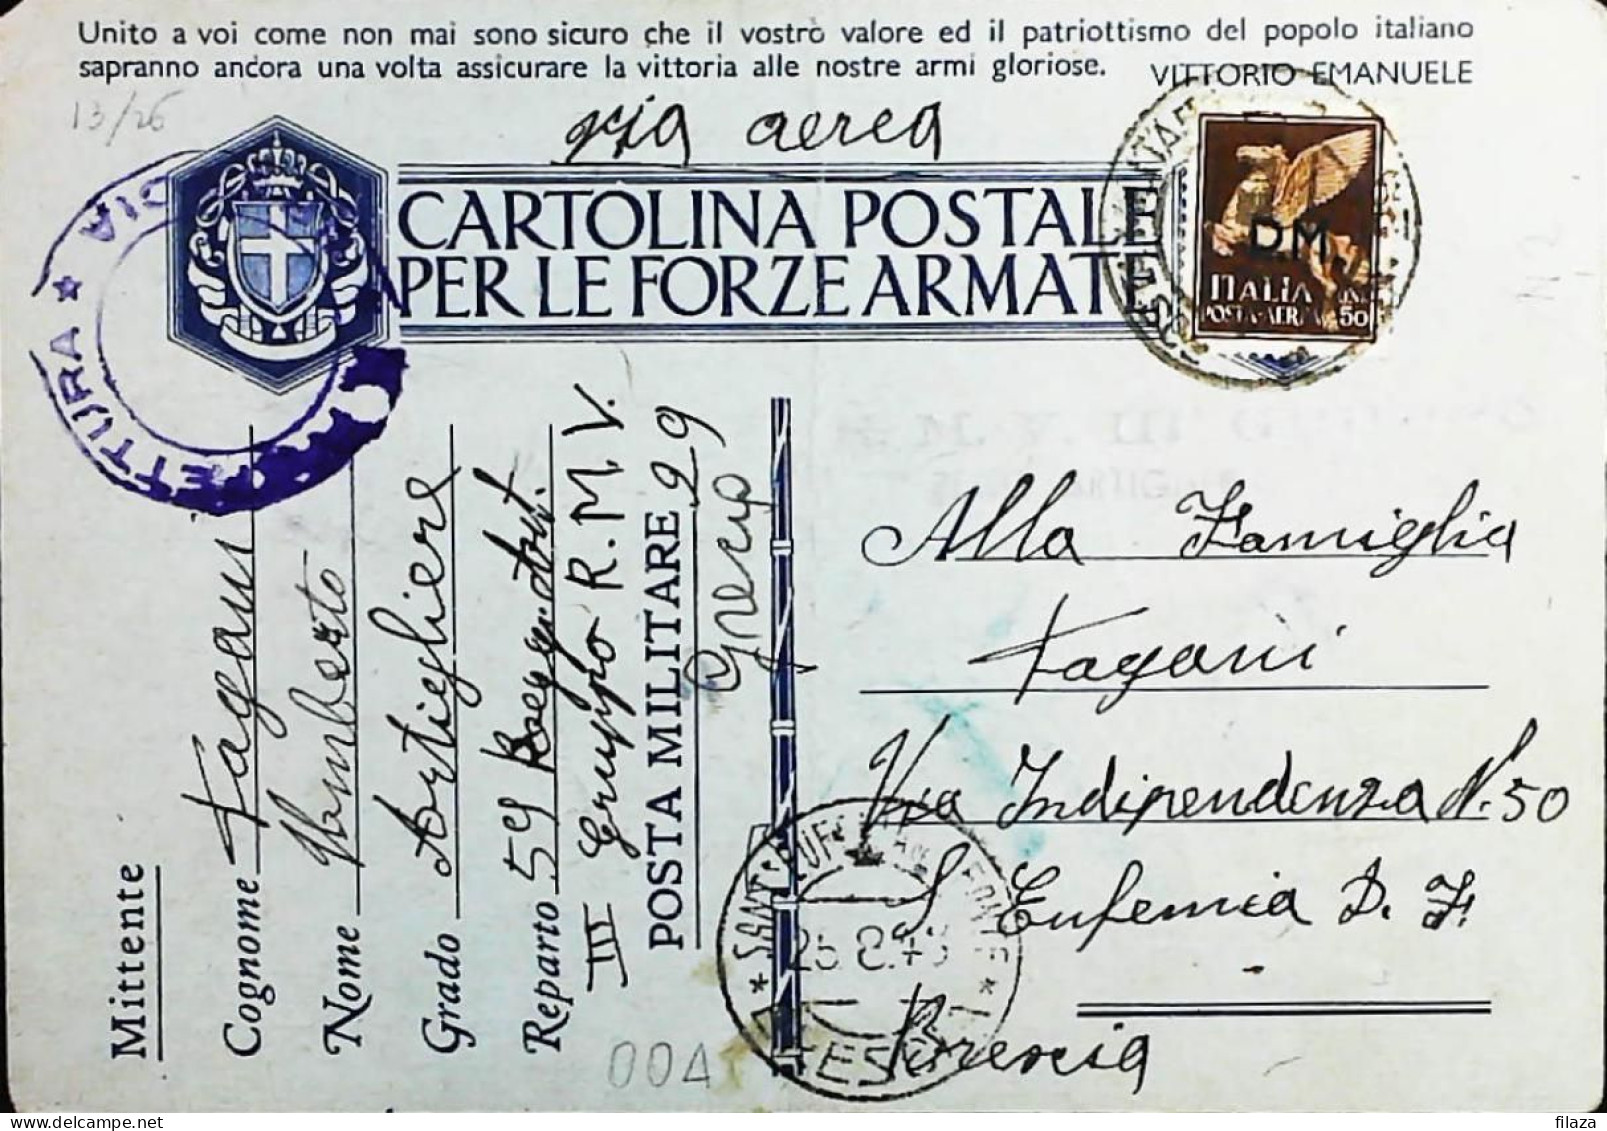 Unito a voi come non mai sono sicuro che il vostro valore ed il patriottismo del popolo italiano
sapranno ancora una volta assicurare la vittoria alle nostre armi gloriose. VITTORIO EMANUELE
13/26
via aerea
CARTOLINA POSTALE
PER LE FORZE ARMATE
D.M.
ITALIA
POSTA-AEREA
50
ETTURA ★
Mittente
Cognome Fagani
Nome Umberto
Grado Artigliere
Reparto 59
III Gruppo R.M.V.
POSTA MILITARE 29
Grecia
Alla Famiglia
Fagani
Via Indipendenza N. 50
S. Eufemia D. F.
Brescia
SANT'EUFEMIA DELLA FONTE
25.8.43
BRESCIA
004
filaza